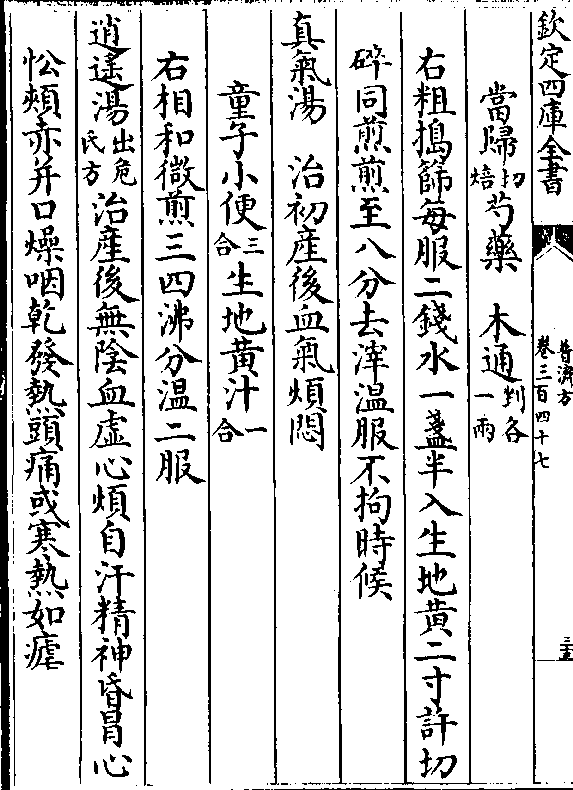 欽定四庫全書
普濟方
卷三百四十七
三五
當歸切焙芍藥 木通剉各一兩
右粗搗篩每服二錢水一盞半入生地黄二寸許切
碎同煎煎至八分去滓温服不拘時候
真氣湯 治初産後血氣煩悶
童子小便三合生地黄汁一合
右相和微煎三四沸分温二服
逍遥湯出危氏方治産後無陰血虚心煩自汗精神昏冒心
忪頰赤并口燥咽乾發熱頭痛或寒熱如瘧